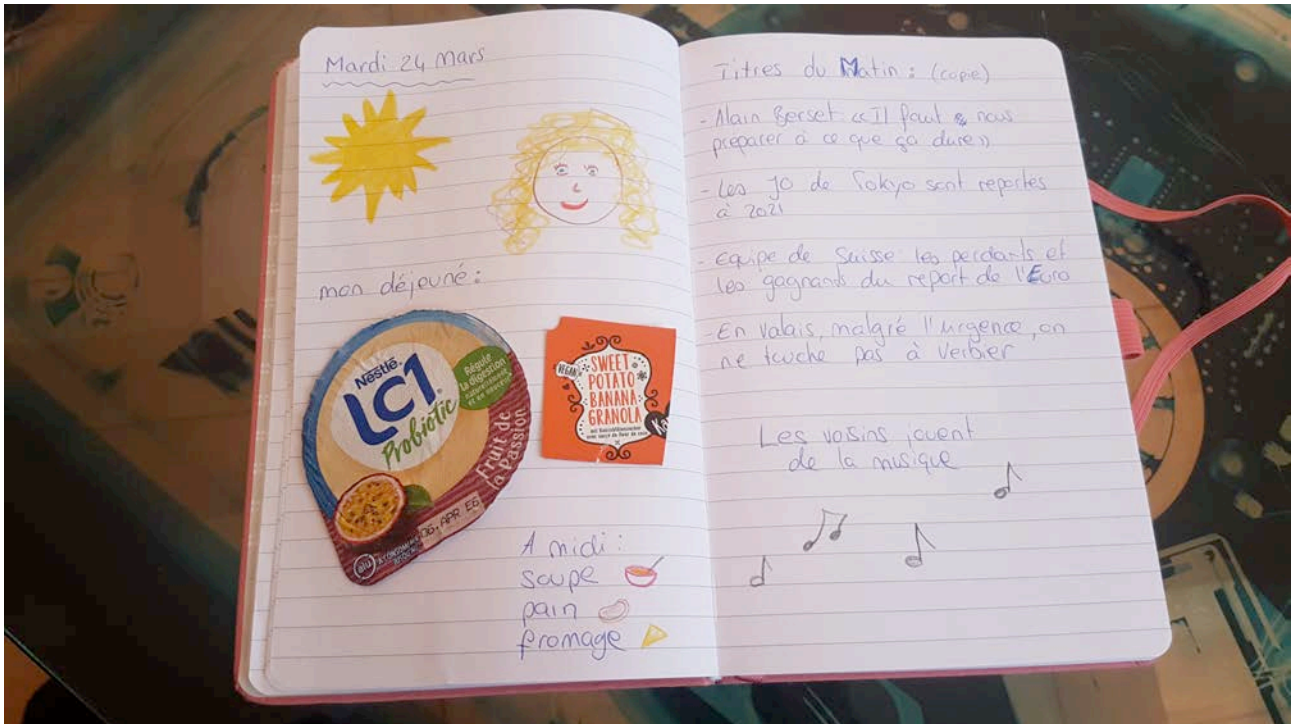 Mardi 24 Mars
mon déjeuné :
Nestlé.
LC1
Probiotic
Régule
la digestion
naturellement
Fruit de
la Passion
06. APR E6
alu
VEGAN
SWEET
POTATO
BANANA
GRANOLA
A midi :
soupe
pain
fromage
Titres du Matin : (copie)
- Alain Berset «Il faut nous
préparer à ce que ça dure»
- Les JO de Tokyo sont reportés
à 2021
- Equipe de Suisse les perdants et
les gagnants du report de l'Euro
- En Valais, malgré l'urgence, on
ne touche pas à Verbier
Les voisins jouent
de la musique